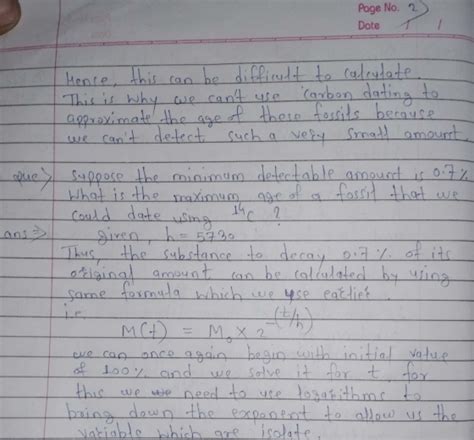 Page No. 2
Date / /
Hence, this can be difficult to calculate
This is why we can't use carbon dating to
approximate the age of these fossils because
we can't detect such a very small amount
que> suppose the minimum detectable amount is 0.7%
What is the maximum age of a fossil that we
could date using ¹⁴C ?
ans⇒ given, h = 5730
Thus, the substance to decay 0.7% of its
original amount can be calculated by using
same formula which we use earlier.
i.e.
M(t) = M₀ × 2^-(t/h)
we can once again begin with initial value
of 100% and we solve it for t. for
this we need to use logarithms to
bring down the exponent to allow us the
variable which are isolate.